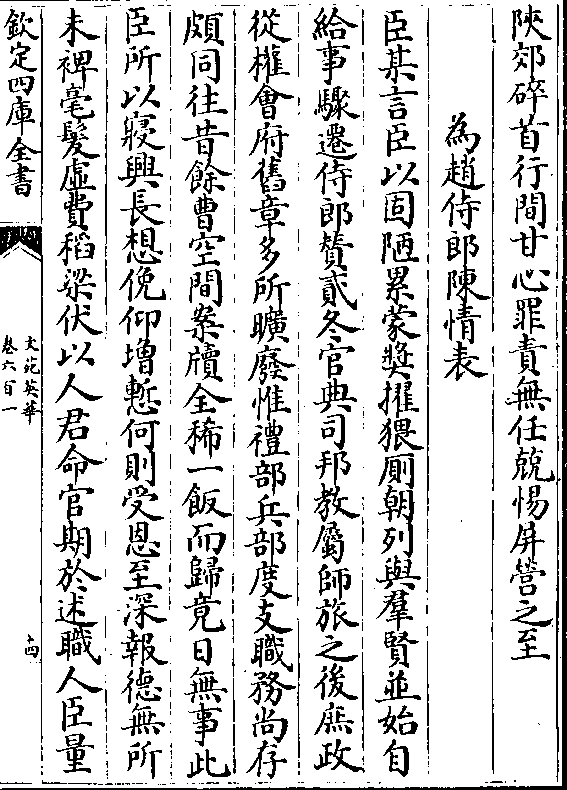 陜郊碎首行間甘心罪責無任兢惕屏營之至
為趙侍郎陳情表
臣某言臣以固陋累蒙奬擢猥厠朝列與羣賢並始自
給事驟遷侍郎贊貳冬官典司邦教屬師旅之後庶政
從權會府舊章多所曠廢惟禮部兵部度支職務尚存
頗同往昔餘曹空間案牘全稀一飯而歸竟日無事此
臣所以寢興長想俛仰增慙何則受恩至深報德無所
未裨毫髮虛費稻粱伏以人君命官期於述職人臣量
欽定四庫全書
文苑英華
卷六百一
十四